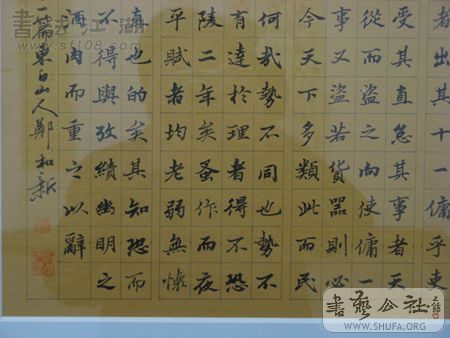 者出其十一傭乎吏
受其直怠其事者天
從而盜之向使傭一
事又盜若貨器則必
今天下多類此而民
何哉勢不同也勢不
有達於理者得不恐
陵二年矣蚤作而夜
平賦者均老弱無懷
真也的矣其知恐而
不得與攷績幽明之
酒肉而重之以辭
一篇東白山人鄭和新
書法江湖
www.sf108.com
書藝公社
WWW.SHUFA.ORG